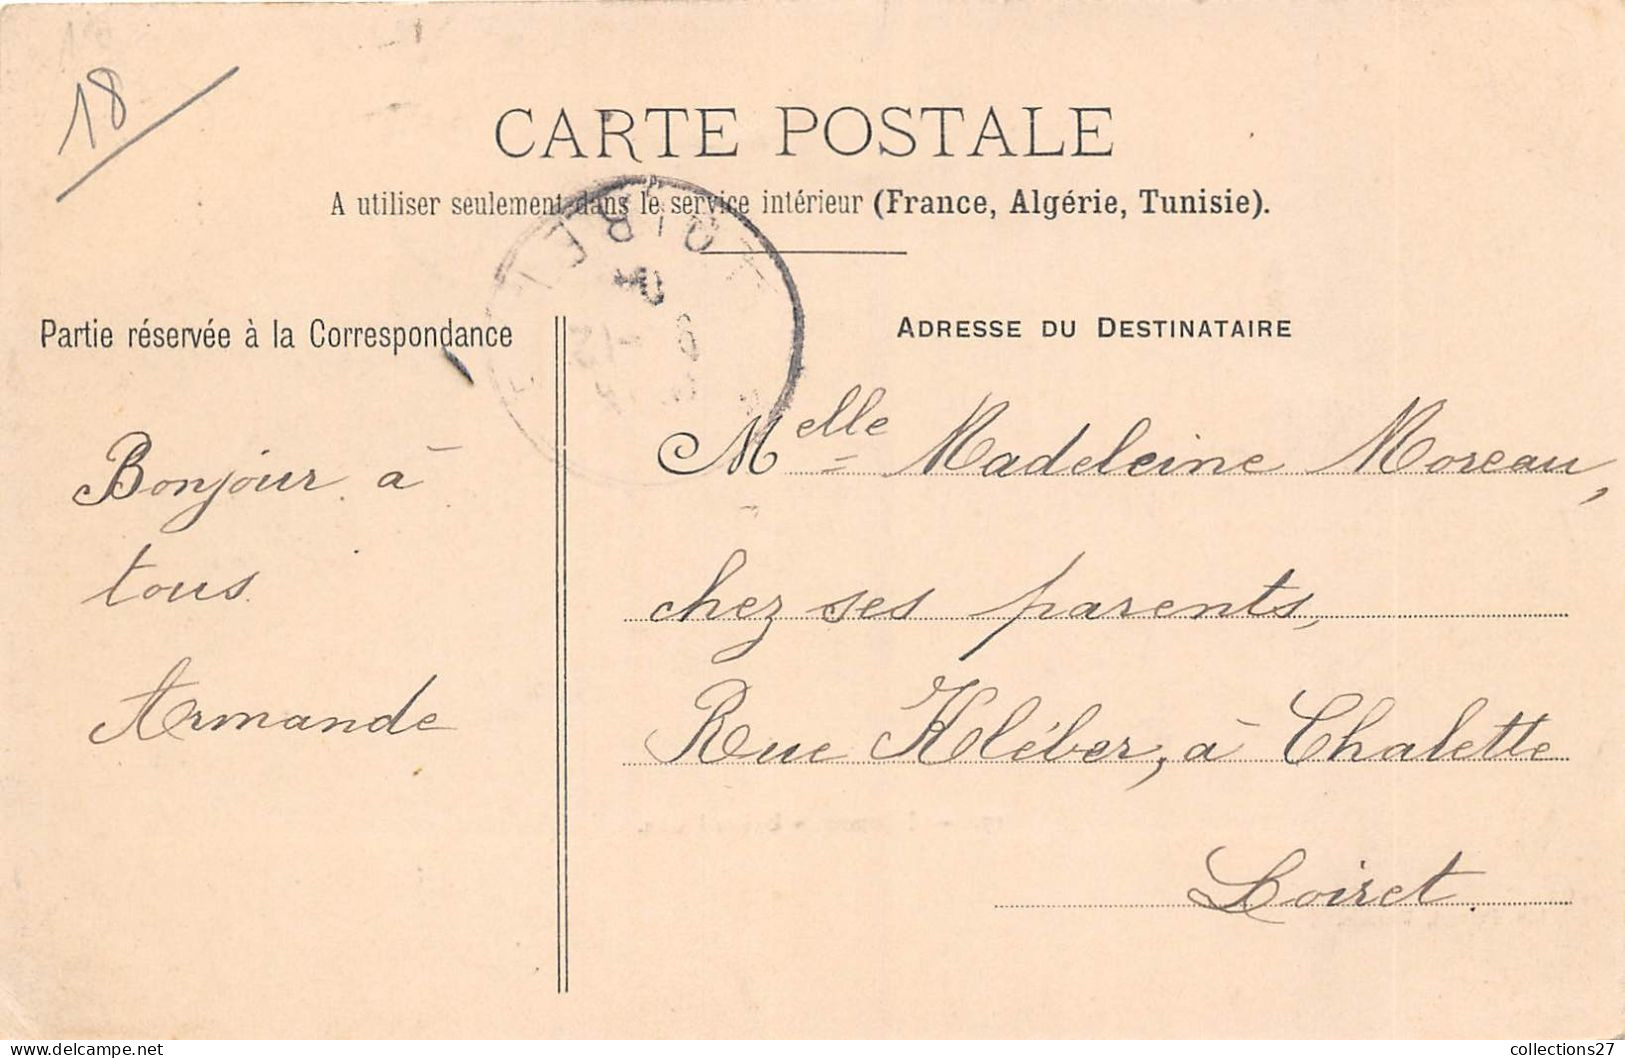 18
CARTE POSTALE
A utiliser seulement dans le service intérieur (France, Algérie, Tunisie).
Partie réservée à la Correspondance
Bonjour à
tous
Armande
ADRESSE DU DESTINATAIRE
Melle Madeleine Moreau,
chez ses parents,
Rue Kléber, à Chalette
Loiret.
collections27